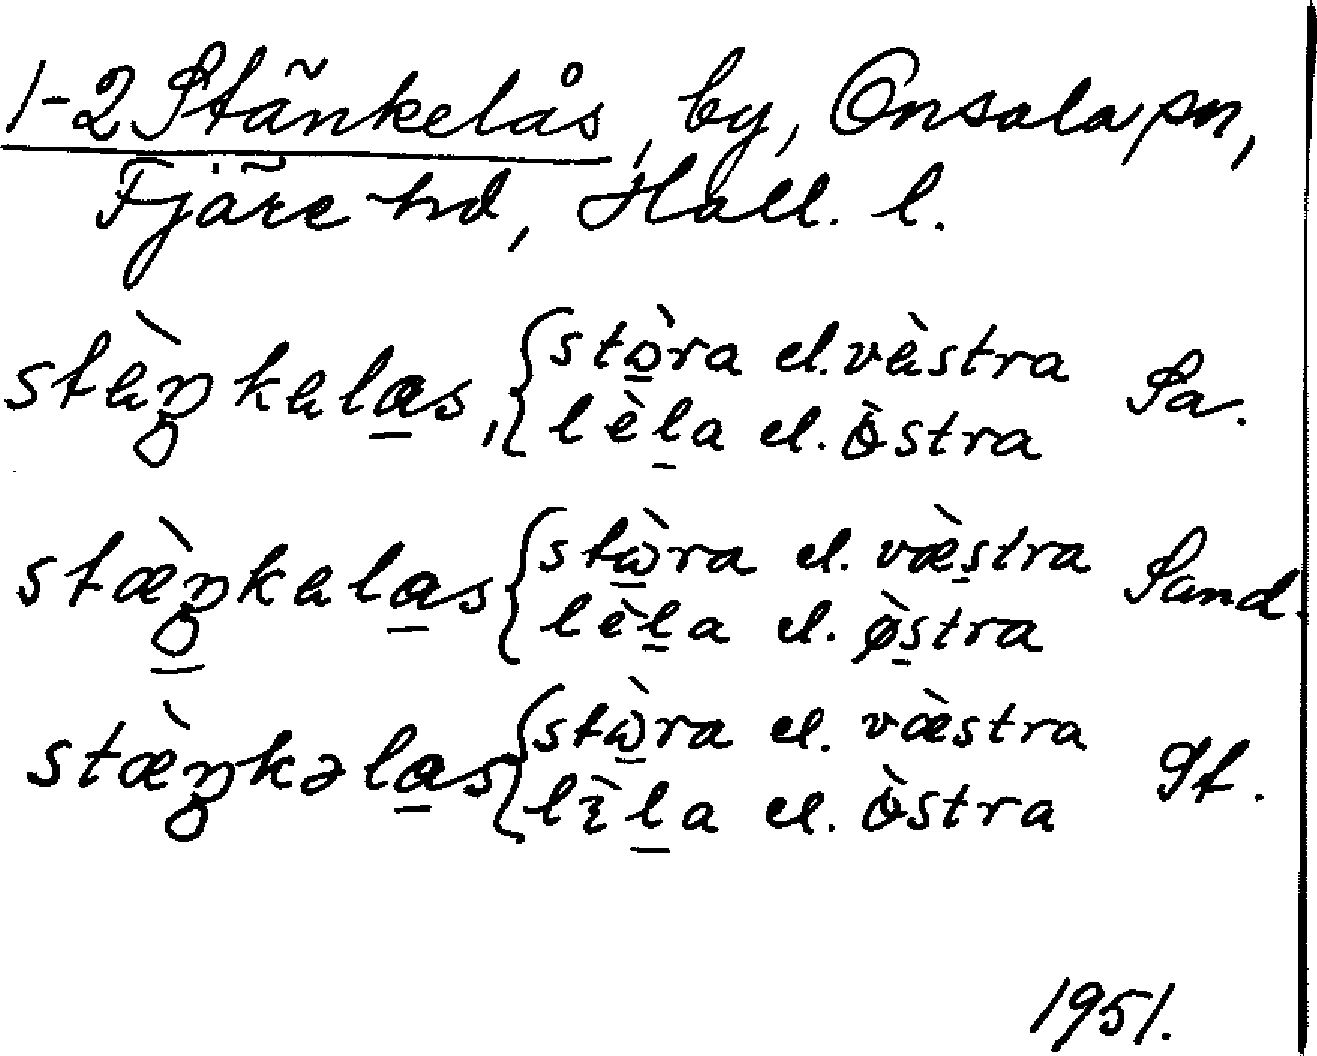 1-2 Stänkelås, by, Onsala sn,
Fjäre hd, Hall. l.
stàŋkalas, { stòra el. vàstra Sa.
lèla el. òstra
stæ̀ŋkalas { stὼra el. væ̀stra Sand.
lèla el. ø̀stra
stæ̀ŋkəlas { stὼra el. væ̀stra St.
lìla el. òstra
1951.